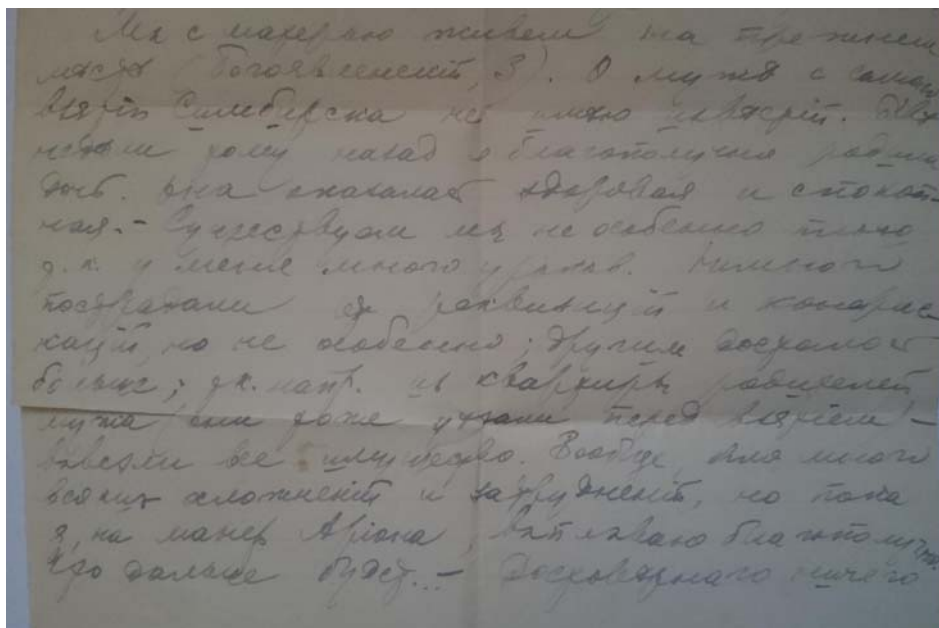 Мы с матерью живем на прежнем
месте (Богоявленский, 3). О муже с самого
взятія Симбирска не имею известій. Две
недели тому назад я благополучно родила
дочь. Она оказалась здоровая и спокой-
ная. – Существуем мы не особенно плохо
т. к. у меня много уроков. Немного
пострадали от реквизицій и конфис-
кацій, но не особенно; другим досталось
больше; т.к. напр. из квартиры родителей
мужа (они тоже уехали перед взятіем) –
вывезли все имущество. Вообще, было много
всяких осложненій и затрудненій, но пока
я, на манер Аріона, выплываю благополучно.
Что дальше будет. – Достоверного ничего